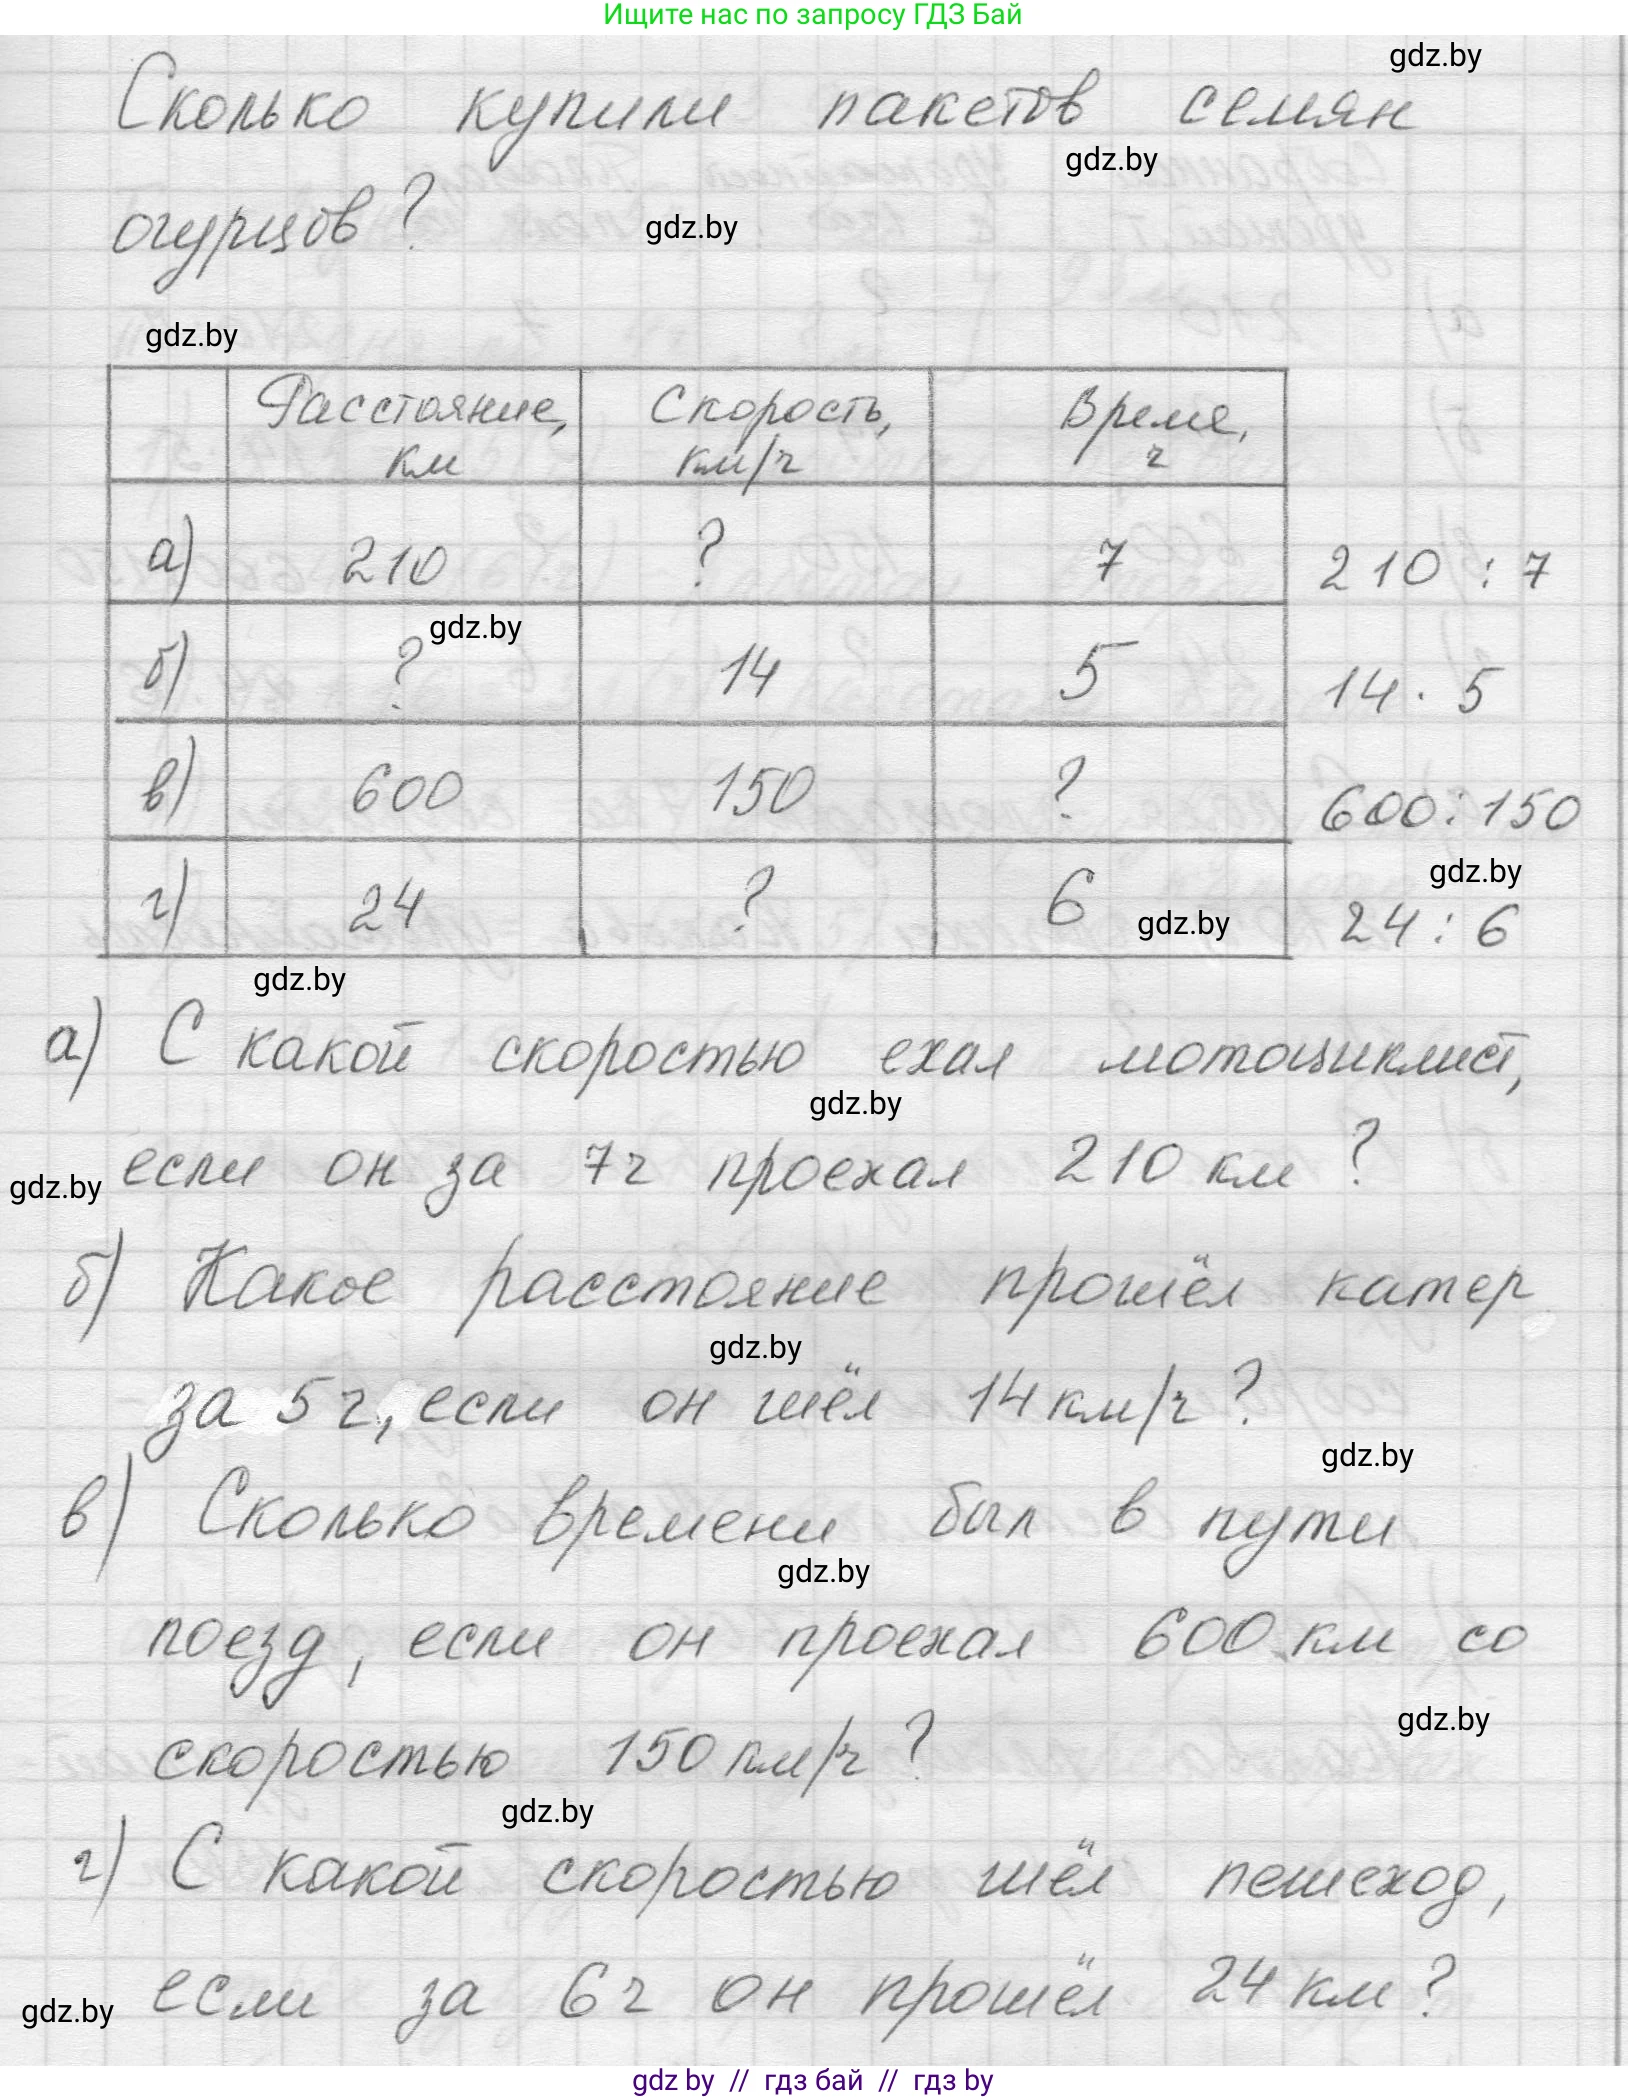 Ищите нас по запросу ГДЗ Бай
gdz.by
Сколько купили пакетов семян
gdz.by
огурцов?
gdz.by
gdz.by
Расстояние, км Скорость, км/ч Время, ч
а) 210 ? 7 210 : 7
gdz.by
б) ? 14 5 14 · 5
в) 600 150 ? 600 : 150
gdz.by
г) 24 ? 6 24 : 6
gdz.by
gdz.by
а) С какой скоростью ехал мотоциклист,
gdz.by
если он за 7 ч проехал 210 км?
gdz.by
б) Какое расстояние прошёл катер
gdz.by
за 5 ч, если он шёл 14 км/ч?
gdz.by
в) Сколько времени был в пути
gdz.by
поезд, если он проехал 600 км со
gdz.by
скоростью 150 км/ч?
gdz.by
г) С какой скоростью шёл пешеход,
если за 6 ч он прошёл 24 км?
gdz.by
gdz by // гдз бай // гдз by